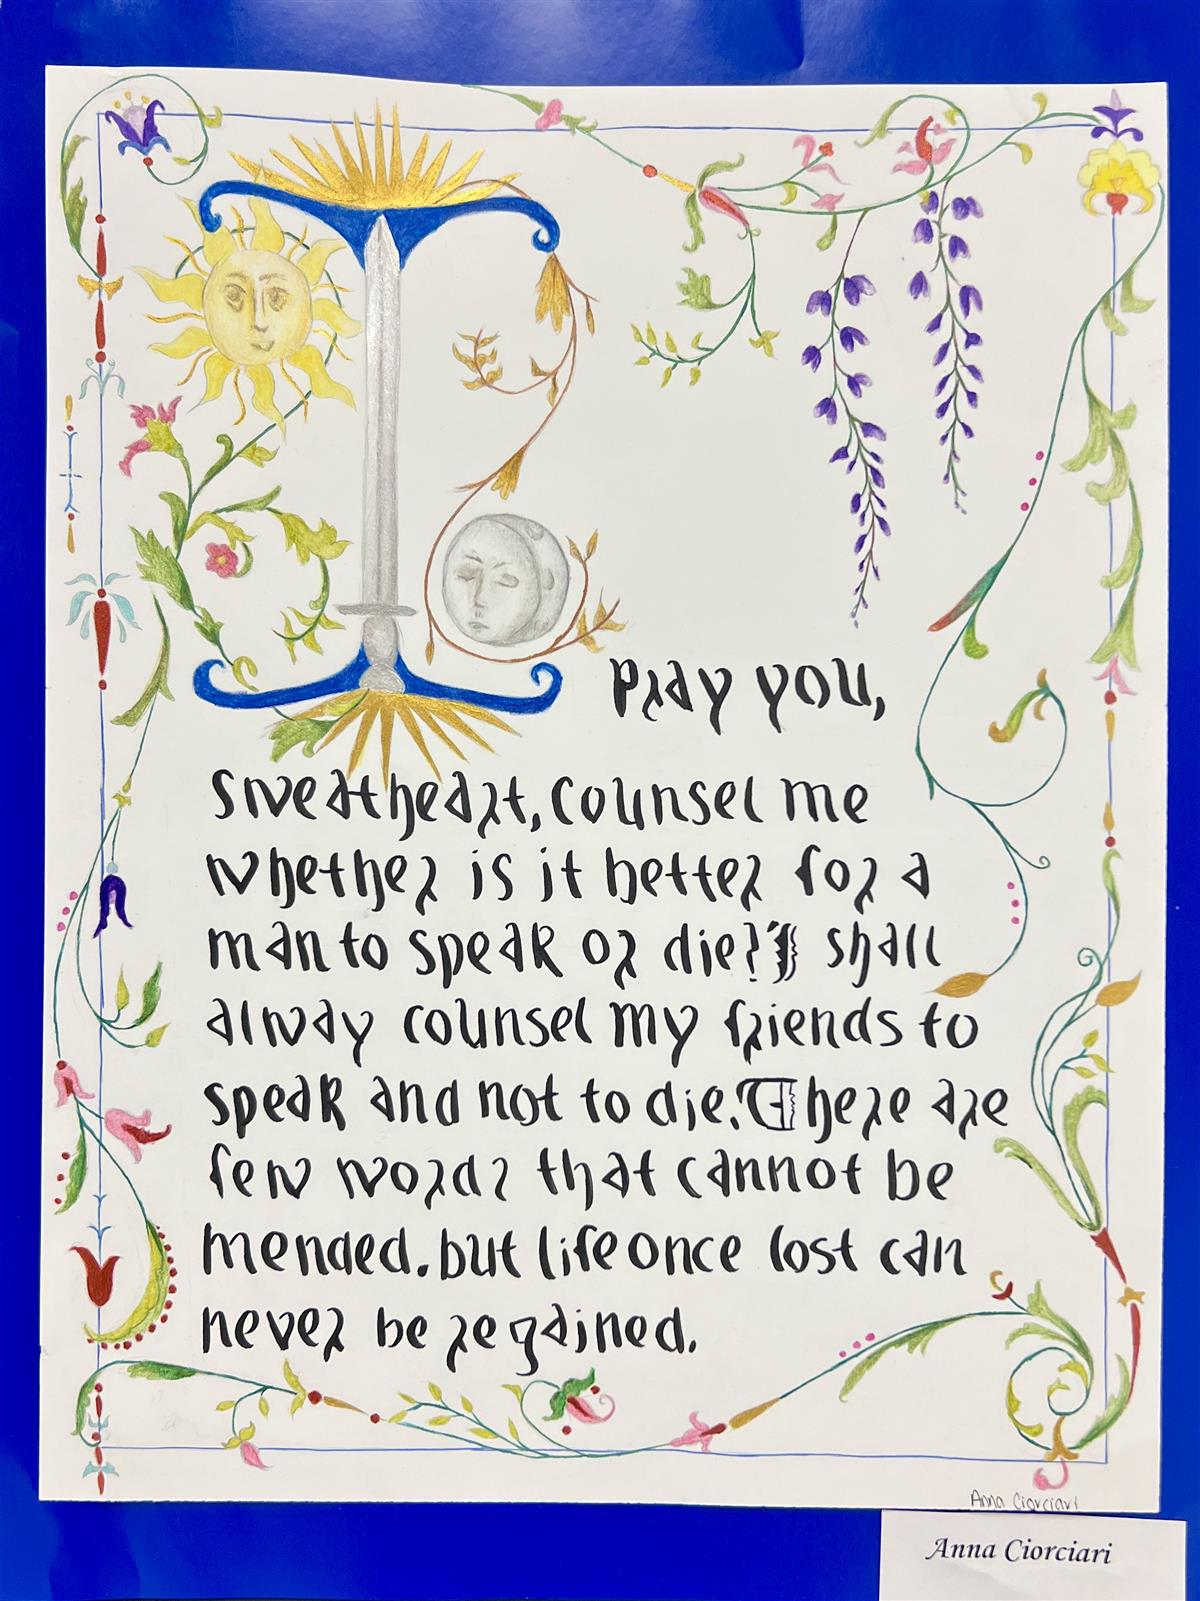 I Pray you,
Sweatheart, counsel me
whether is it better for a
man to speak or die? I shall
alway counsel my friends to
speak and not to die. There are
few words that cannot be
mended. but life once lost can
never be regained.
Anna Ciorciari
Anna Ciorciari